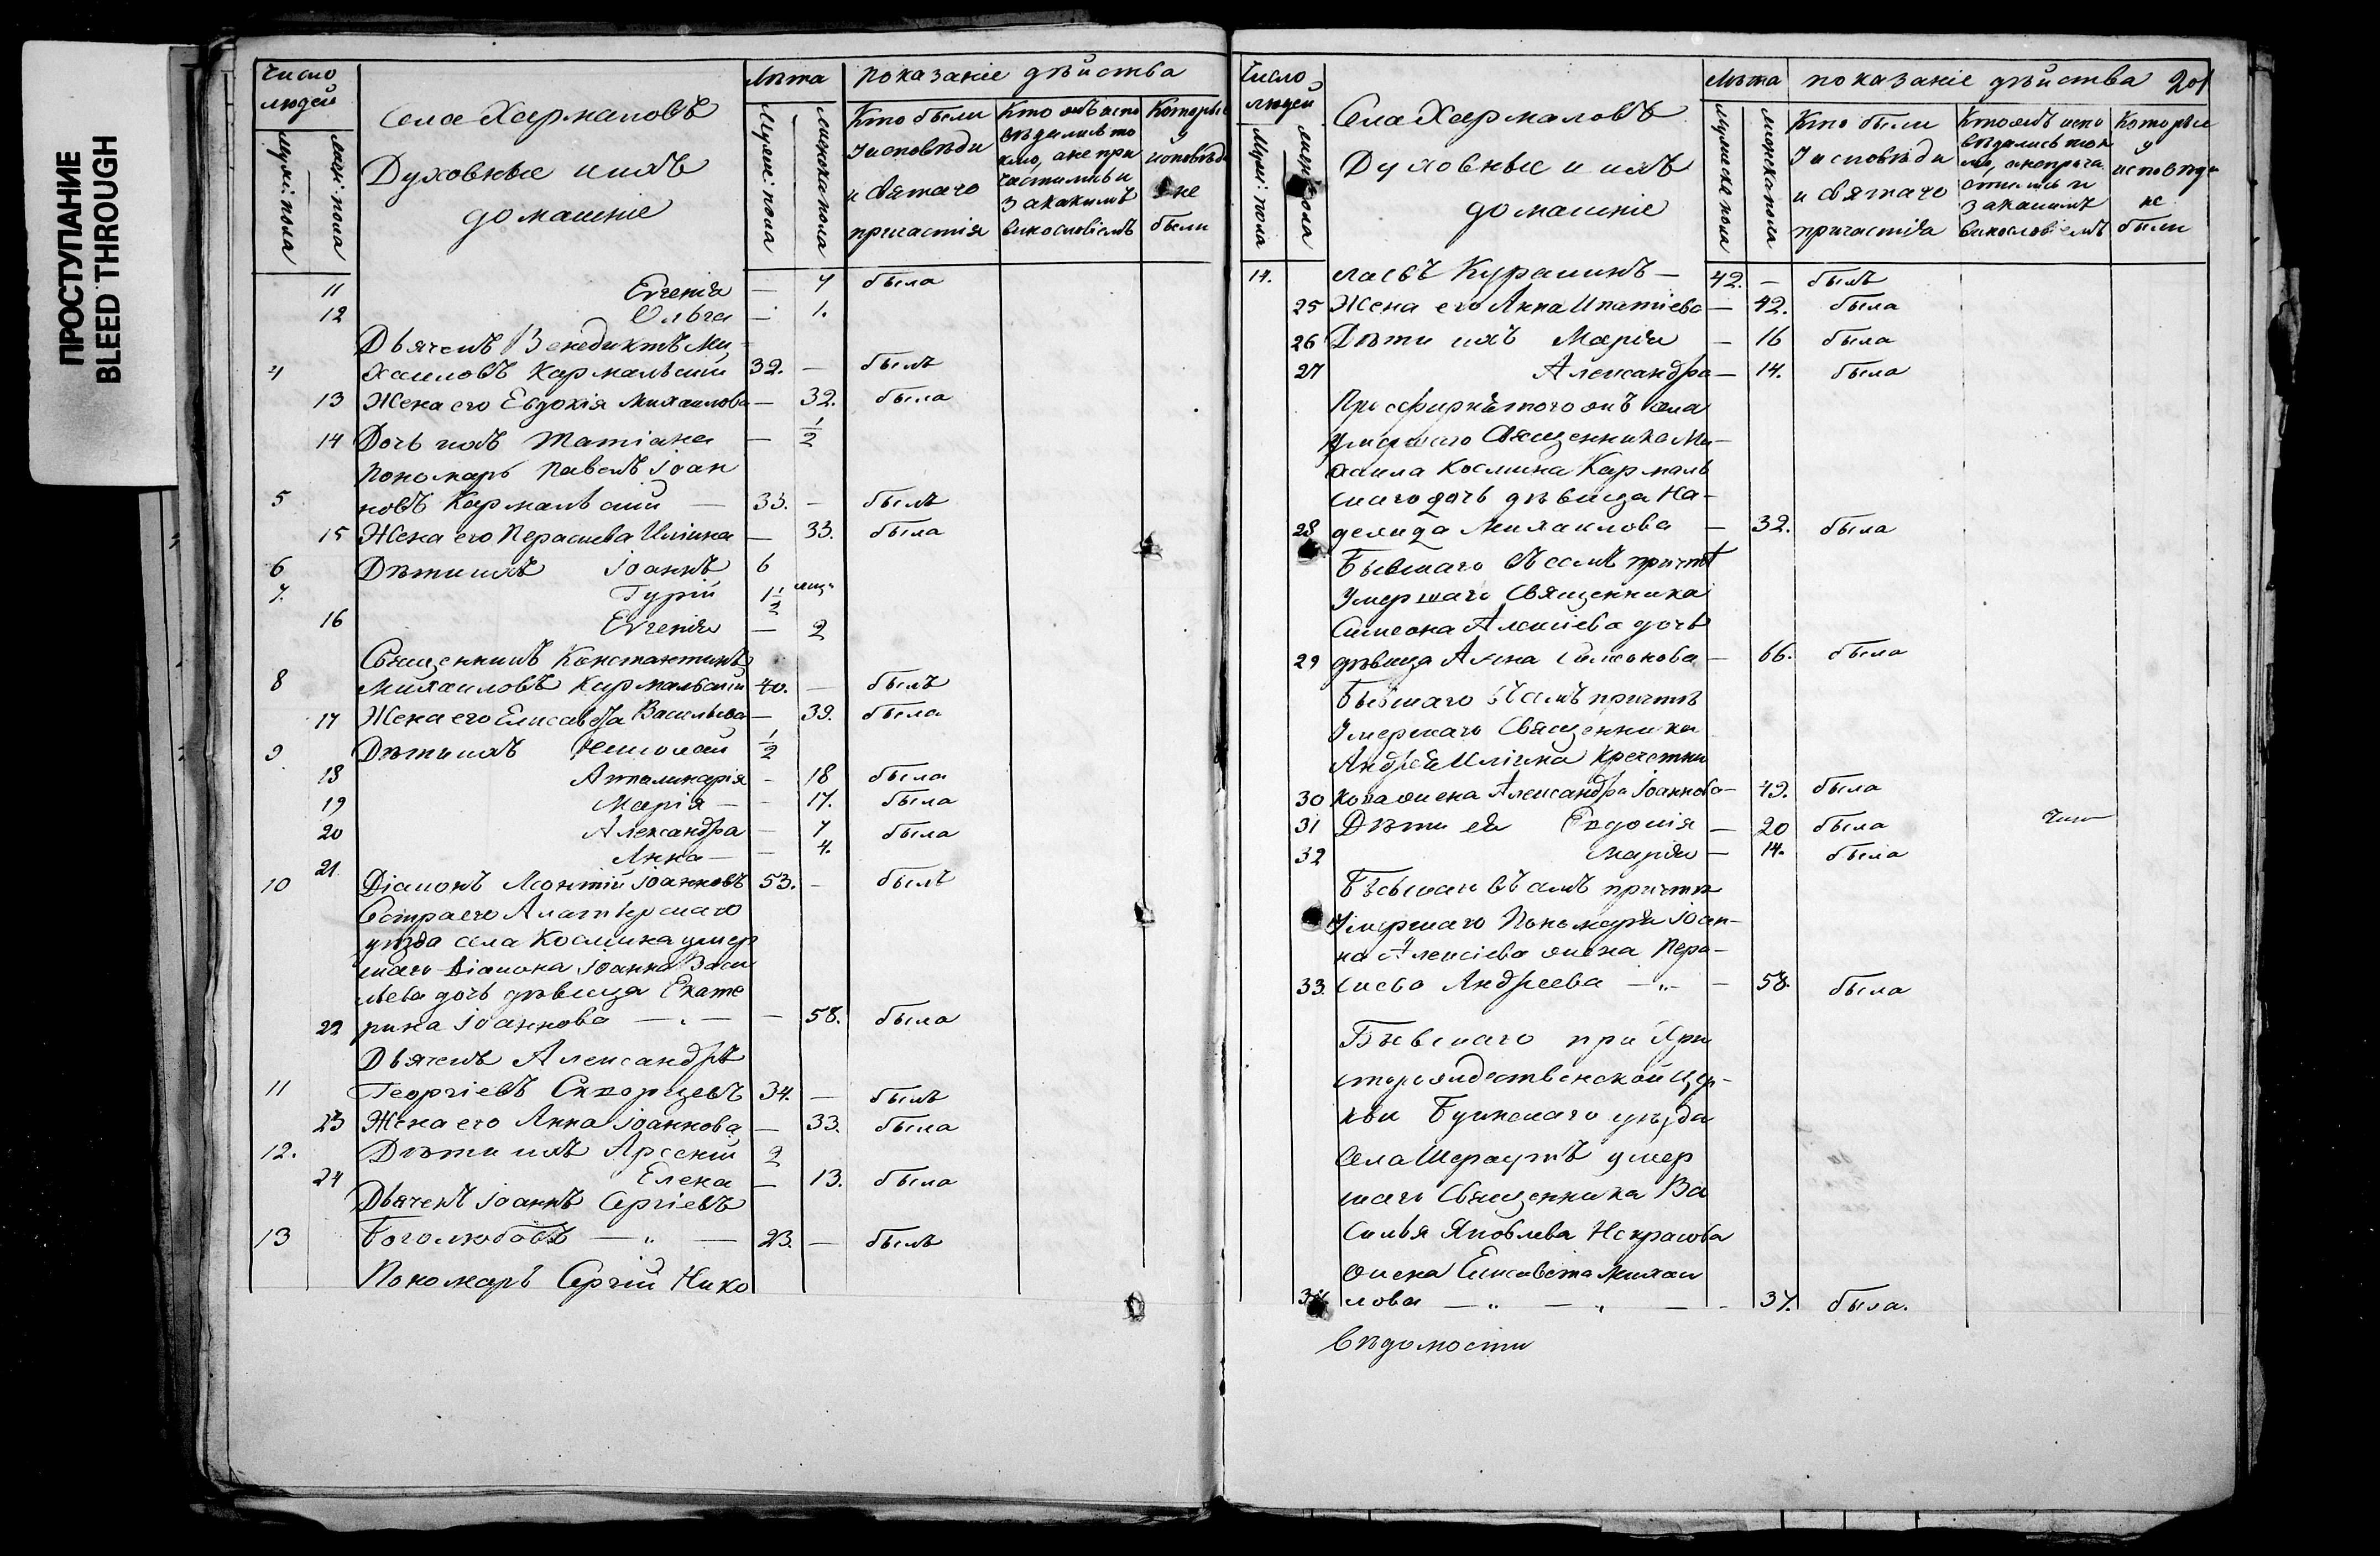 ПРОСТУПАНИЕ
BLEED THROUGH
Число людей
Муж: пола
жен: пола
Села Хармаловъ
Духовные ихъ
домашніе
Лѣта
Муже: пола
женска пола
показаніе дѣйства
Кто были
У исповѣди
и святаго
причастія
Кто жъ испо
вѣдались то
кмо, а не при
частились и
за какимъ
винословіемъ
Которые
у
исповѣди
не
были
11 Евгенія — 7 была
12 Ольга — 1.
Дьячекъ Венедиктъ Ми
4 хаиловъ Кармальскій 32. — былъ
13 Жена его Евдокія Михаилова — 32. была
14 Дочь ихъ Татіана — 1/2
Пономарь Павелъ Іоан
5 новъ Кармальскій — 33. — былъ
15 Жена его Параскева Иліина — 33. была
6 Дѣти ихъ Іоаннъ 6
7. Гурій 1 1/2
16 Евгенія — 2
Священникъ Константинъ
8 Михаиловъ Кармальскій 40. — былъ
17 Жена его Елисавета Васильева — 39. была
9 Дѣти ихъ Николай 1/2
18 Апполинарія — 18 была
19 Марія — — 17. была
20 Александра — 7 была
21. Анна — — 4.
10 Діаконъ Леонтій Іоанновъ 53. — былъ
Сестра его Алатырскаго
уѣзда села Космина умер
шаго Діакона Іоанна Васи
льева дочь дѣвица Екате
22 рина Іоаннова — — — 58. была
Дьячекъ Александръ
11 Георгіевъ Скворцевъ 34. — былъ
23 Жена его Анна Іоаннова — 33. была
12. Дѣти ихъ Арсеній 2
24 Елена — 13. была
Дьячекъ Іоаннъ Сергіевъ
13 Боголюбовъ — „ — 23. — былъ
Пономарь Сергій Нико
Число
людей
Муж: пола
жен: пола
Села Хармаловъ
Духовные и ихъ
домашніе
Лѣта
Мужеска пола
женска пола
показаніе дѣйства 201
Кто были
У исповѣди
и святаго
причастія
Кто жъ испо
вѣдались ток
мо, а не прича
стились и
за какимъ
винословіемъ
Которые
у
исповѣди
не
были
14. лаевъ Курашинъ — 42. — былъ
25 Жена его Анна Ипатіева — 42. была
26 Дѣти ихъ Марія — 16 была
27 Александра — 14. была
При
умершаго Священника Ми—
хаила Космина Кармаль
скаго дочь дѣвица На—
28 дежда Михаилова — 32. была
Бывшаго въ семъ причтѣ
Умершаго Священника
Симеона Алексіева дочь
29 дѣвица Анна Симеонова — 66. была
Бывшаго въ семъ причтѣ
Умершаго Священника
Андрея Иліина Кречетни
30 кова жена Александра Іоаннова — 49. была
31 Дѣти ея Евдокія — 20 была
32 Марія — 14. была
Бывшаго въ семъ причтѣ
Умершаго Пономаря Іоан—
на Алексіева жена Пара—
33. скева Андреева — „ — — 58. была
Бывшаго при Хри
сторождественской Цер—
кви Буинскаго уѣзда
Села Шераутъ умер
шаго Священника Ва
силья Яковлева Некрасова
жена Елисавета Михаи
34 лова — „ — „ — — 37. была.
Вѣдомости